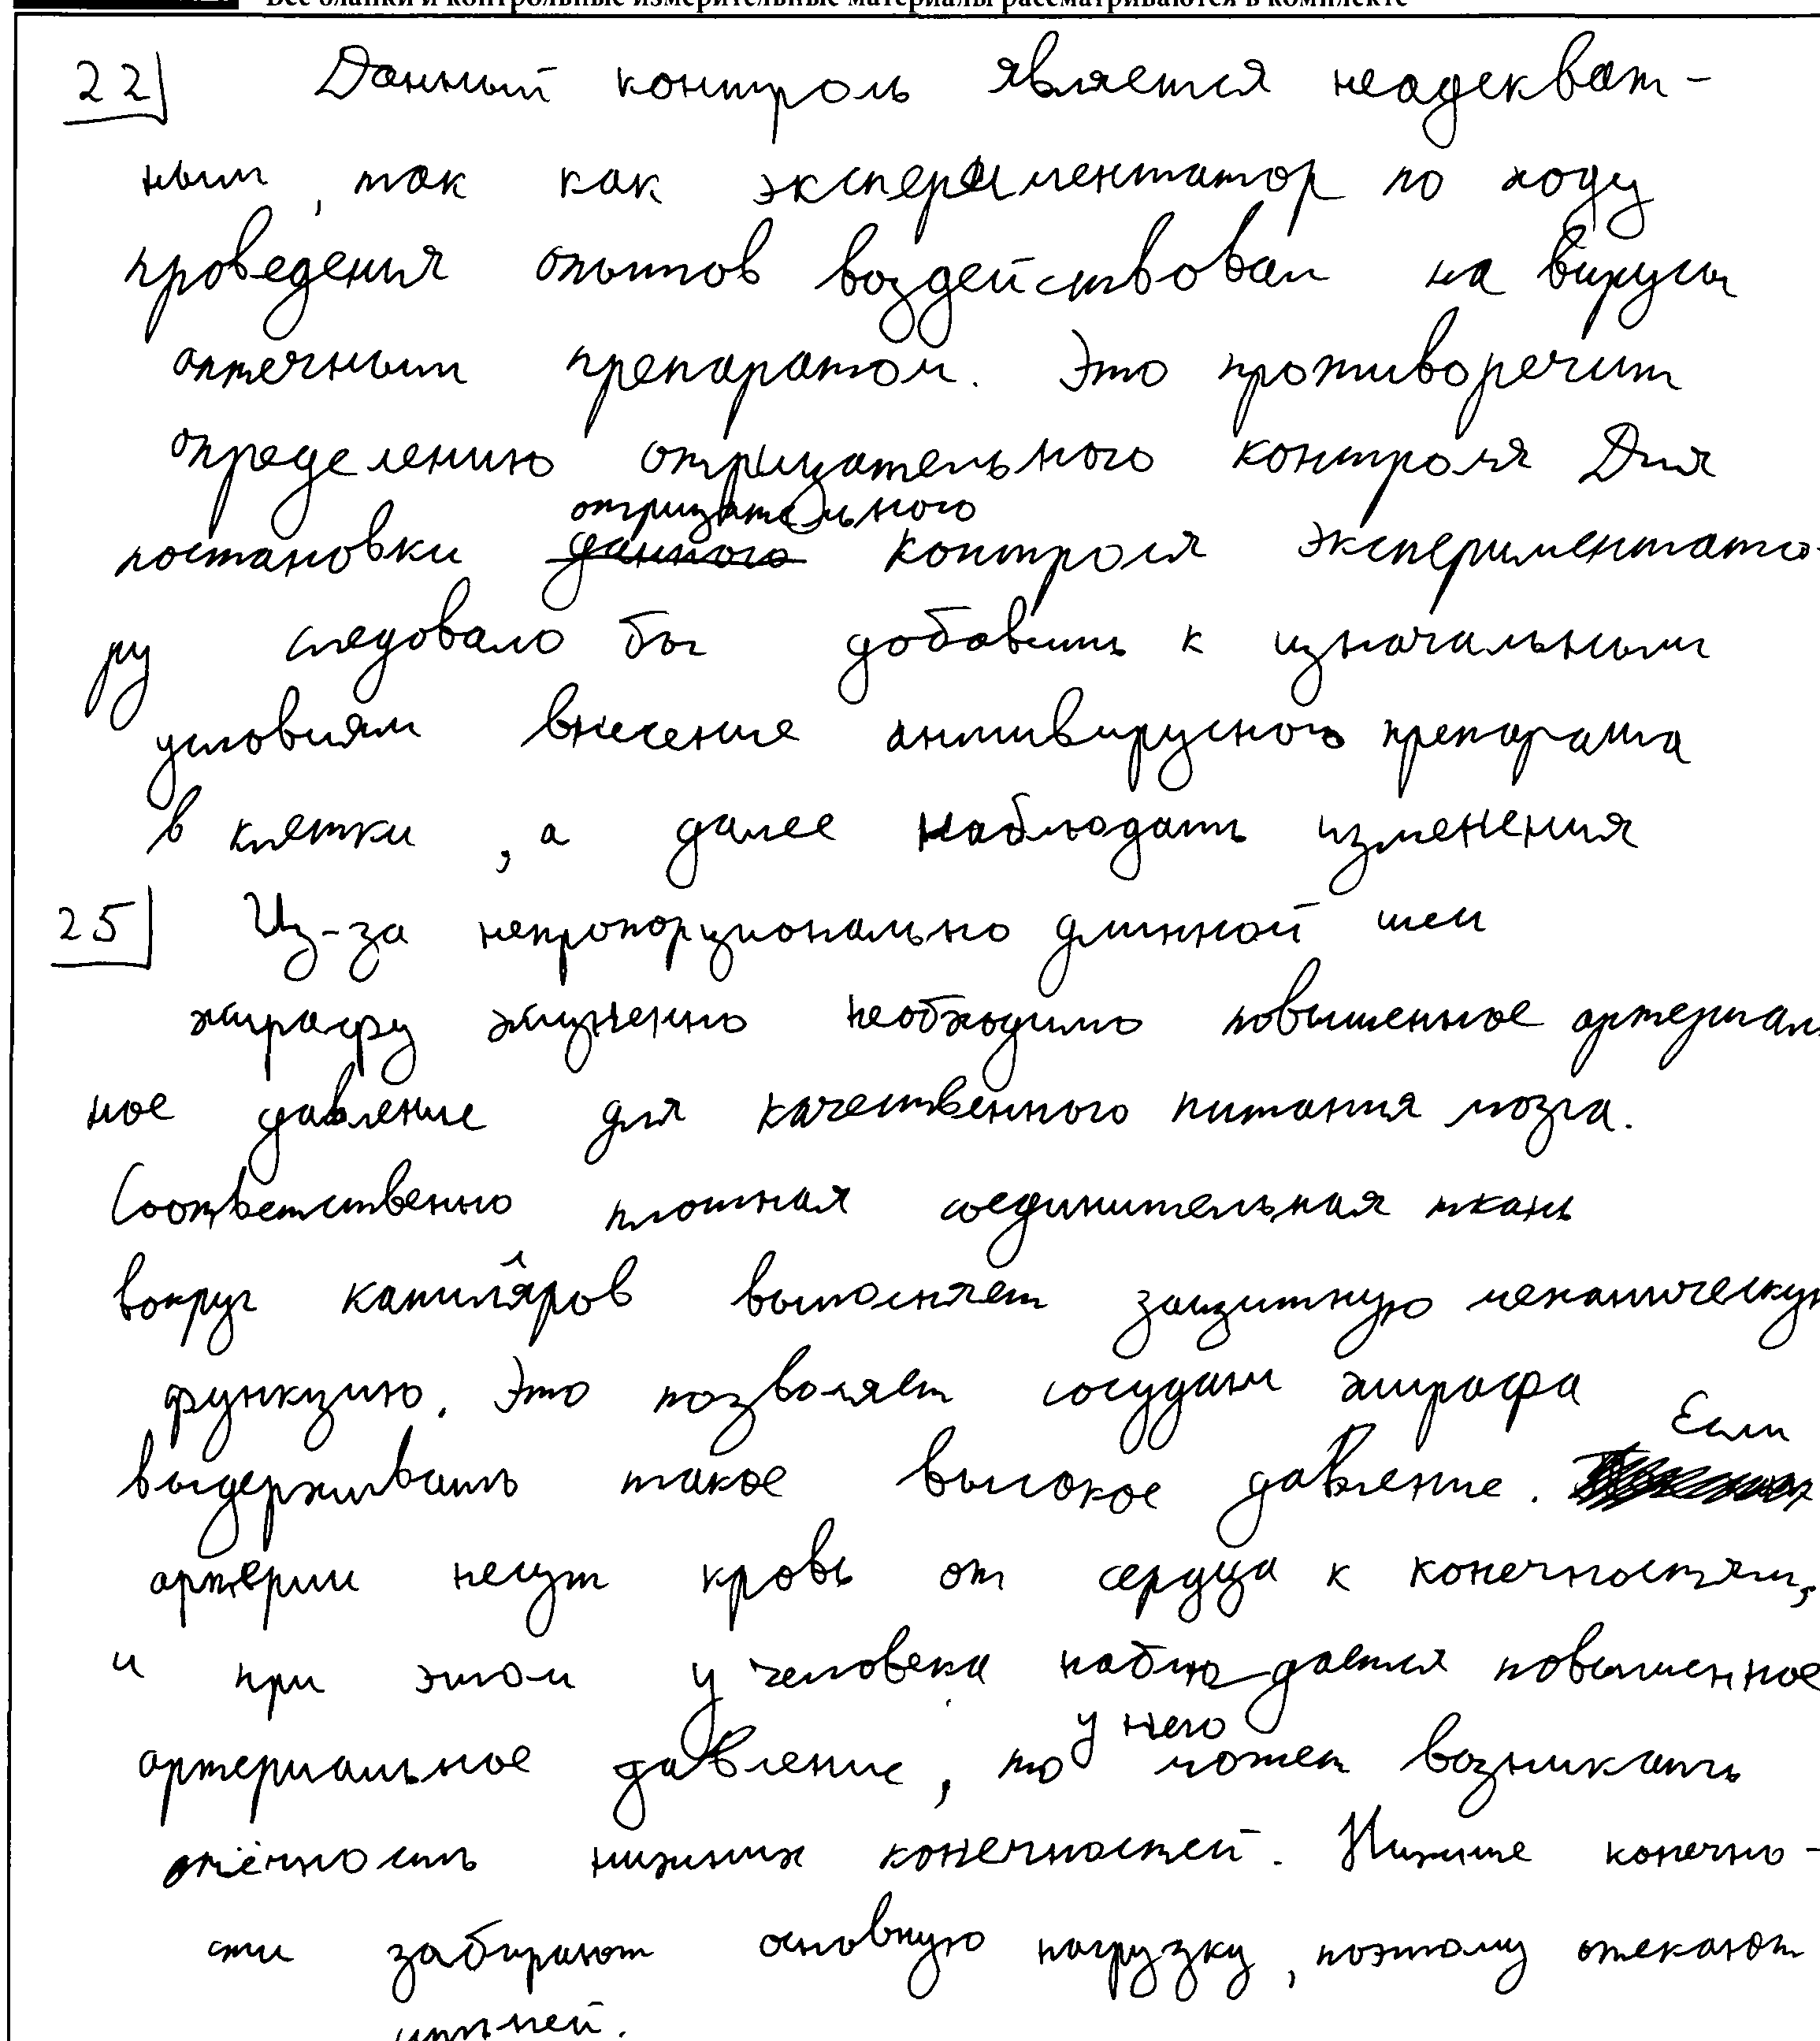 Все бланки и контрольные измерительные материалы рассматриваются в комплекте
22 Данный контроль является неадекват-
ным, так как экспериментатор по ходу
проведения опытов воздействовал на вирусы
аптечным препаратом. Это противоречит
определению отрицательного контроля Для
отрицательного
постановки данного контроля экспериментато-
ру следовало бы добавить к изначальным
условиям внесение антивирусного препарата
в клетки, а далее наблюдать изменения
25 Из-за непропорционально длинной шеи
жирафу жизненно необходимо повышенное артериаль
ное давление для качественного питания мозга.
Соответственно плотная соединительная ткань
вокруг капилляров выполняет защитную механическую
функцию. Это позволяет сосудам жирафа
Если
выдерживать такое высокое давление.
артерии несут кровь от сердца к конечностям,
и при этом у человека наблюдается повышенное
у него
артериальное давление, то может возникать
отёчность нижних конечностей. Нижние конечно-
сти забирают основную нагрузку, поэтому отекают